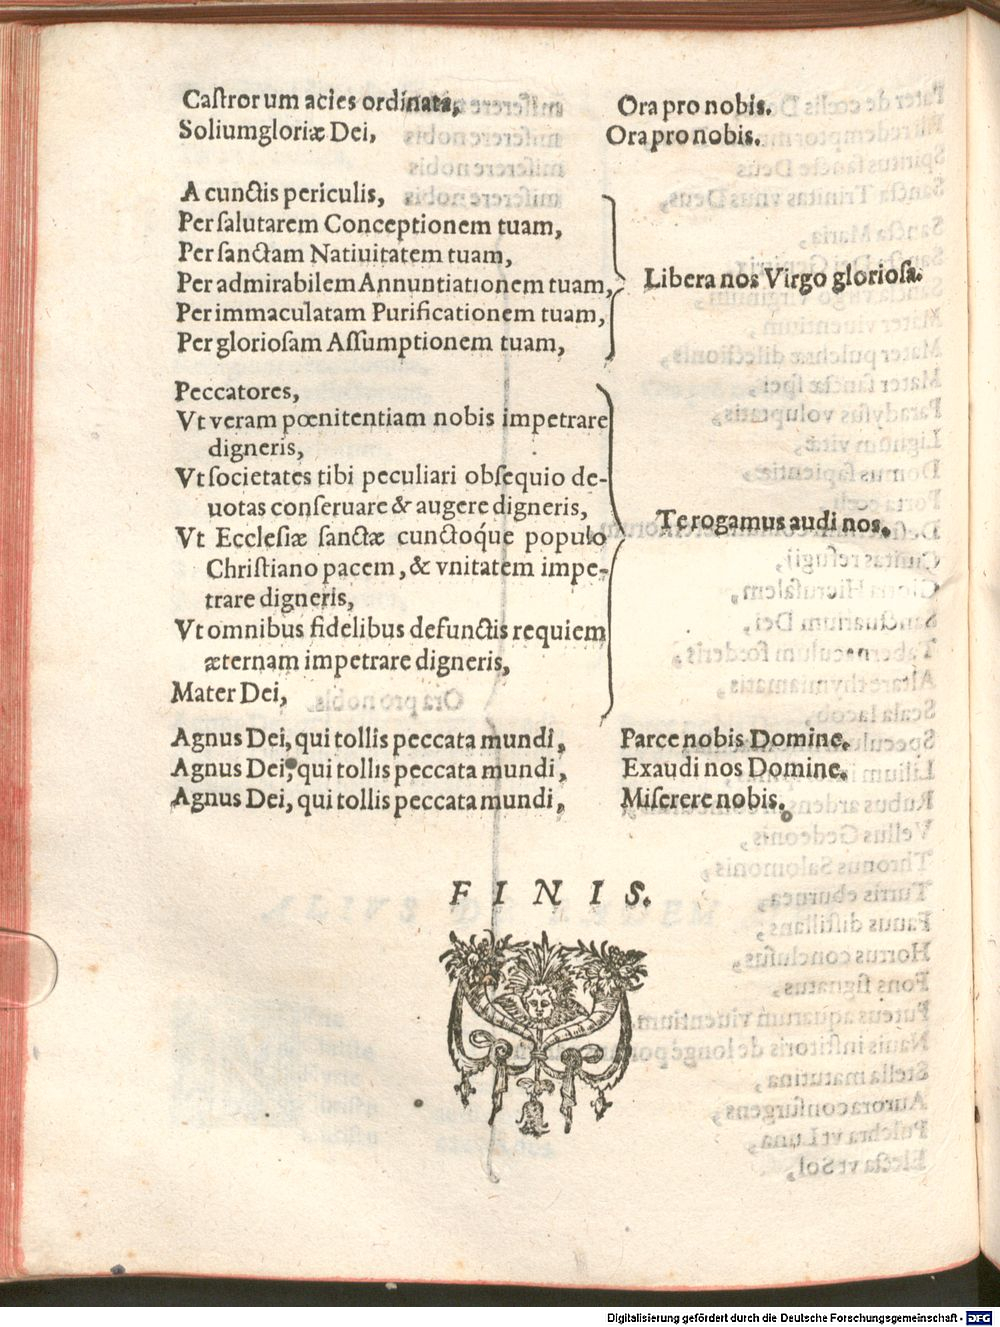 Castrorum acies ordinata, Ora pro nobis.
Solium gloriæ Dei, Ora pro nobis.
A cunctis periculis,
Per salutarem Conceptionem tuam,
Per sanctam Natiuitatem tuam,
Per admirabilem Annuntiationem tuam,
Per immaculatam Purificationem tuam,
Per gloriosam Assumptionem tuam,
Libera nos Virgo gloriosa.
Peccatores,
Vt veram pœnitentiam nobis impetrare
digneris,
Vt societates tibi peculiari obsequio de-
uotas conseruare & augere digneris,
Vt Ecclesiæ sanctæ cunctoq́ue populo
Christiano pacem, & vnitatem impe-
trare digneris,
Vt omnibus fidelibus defunctis requiem
æternam impetrare digneris,
Mater Dei,
Te rogamus audi nos.
Agnus Dei, qui tollis peccata mundi, Parce nobis Domine.
Agnus Dei, qui tollis peccata mundi, Exaudi nos Domine.
Agnus Dei, qui tollis peccata mundi, Miserere nobis.
FINIS.
Digitalisierung gefördert durch die Deutsche Forschungsgemeinschaft - DFG